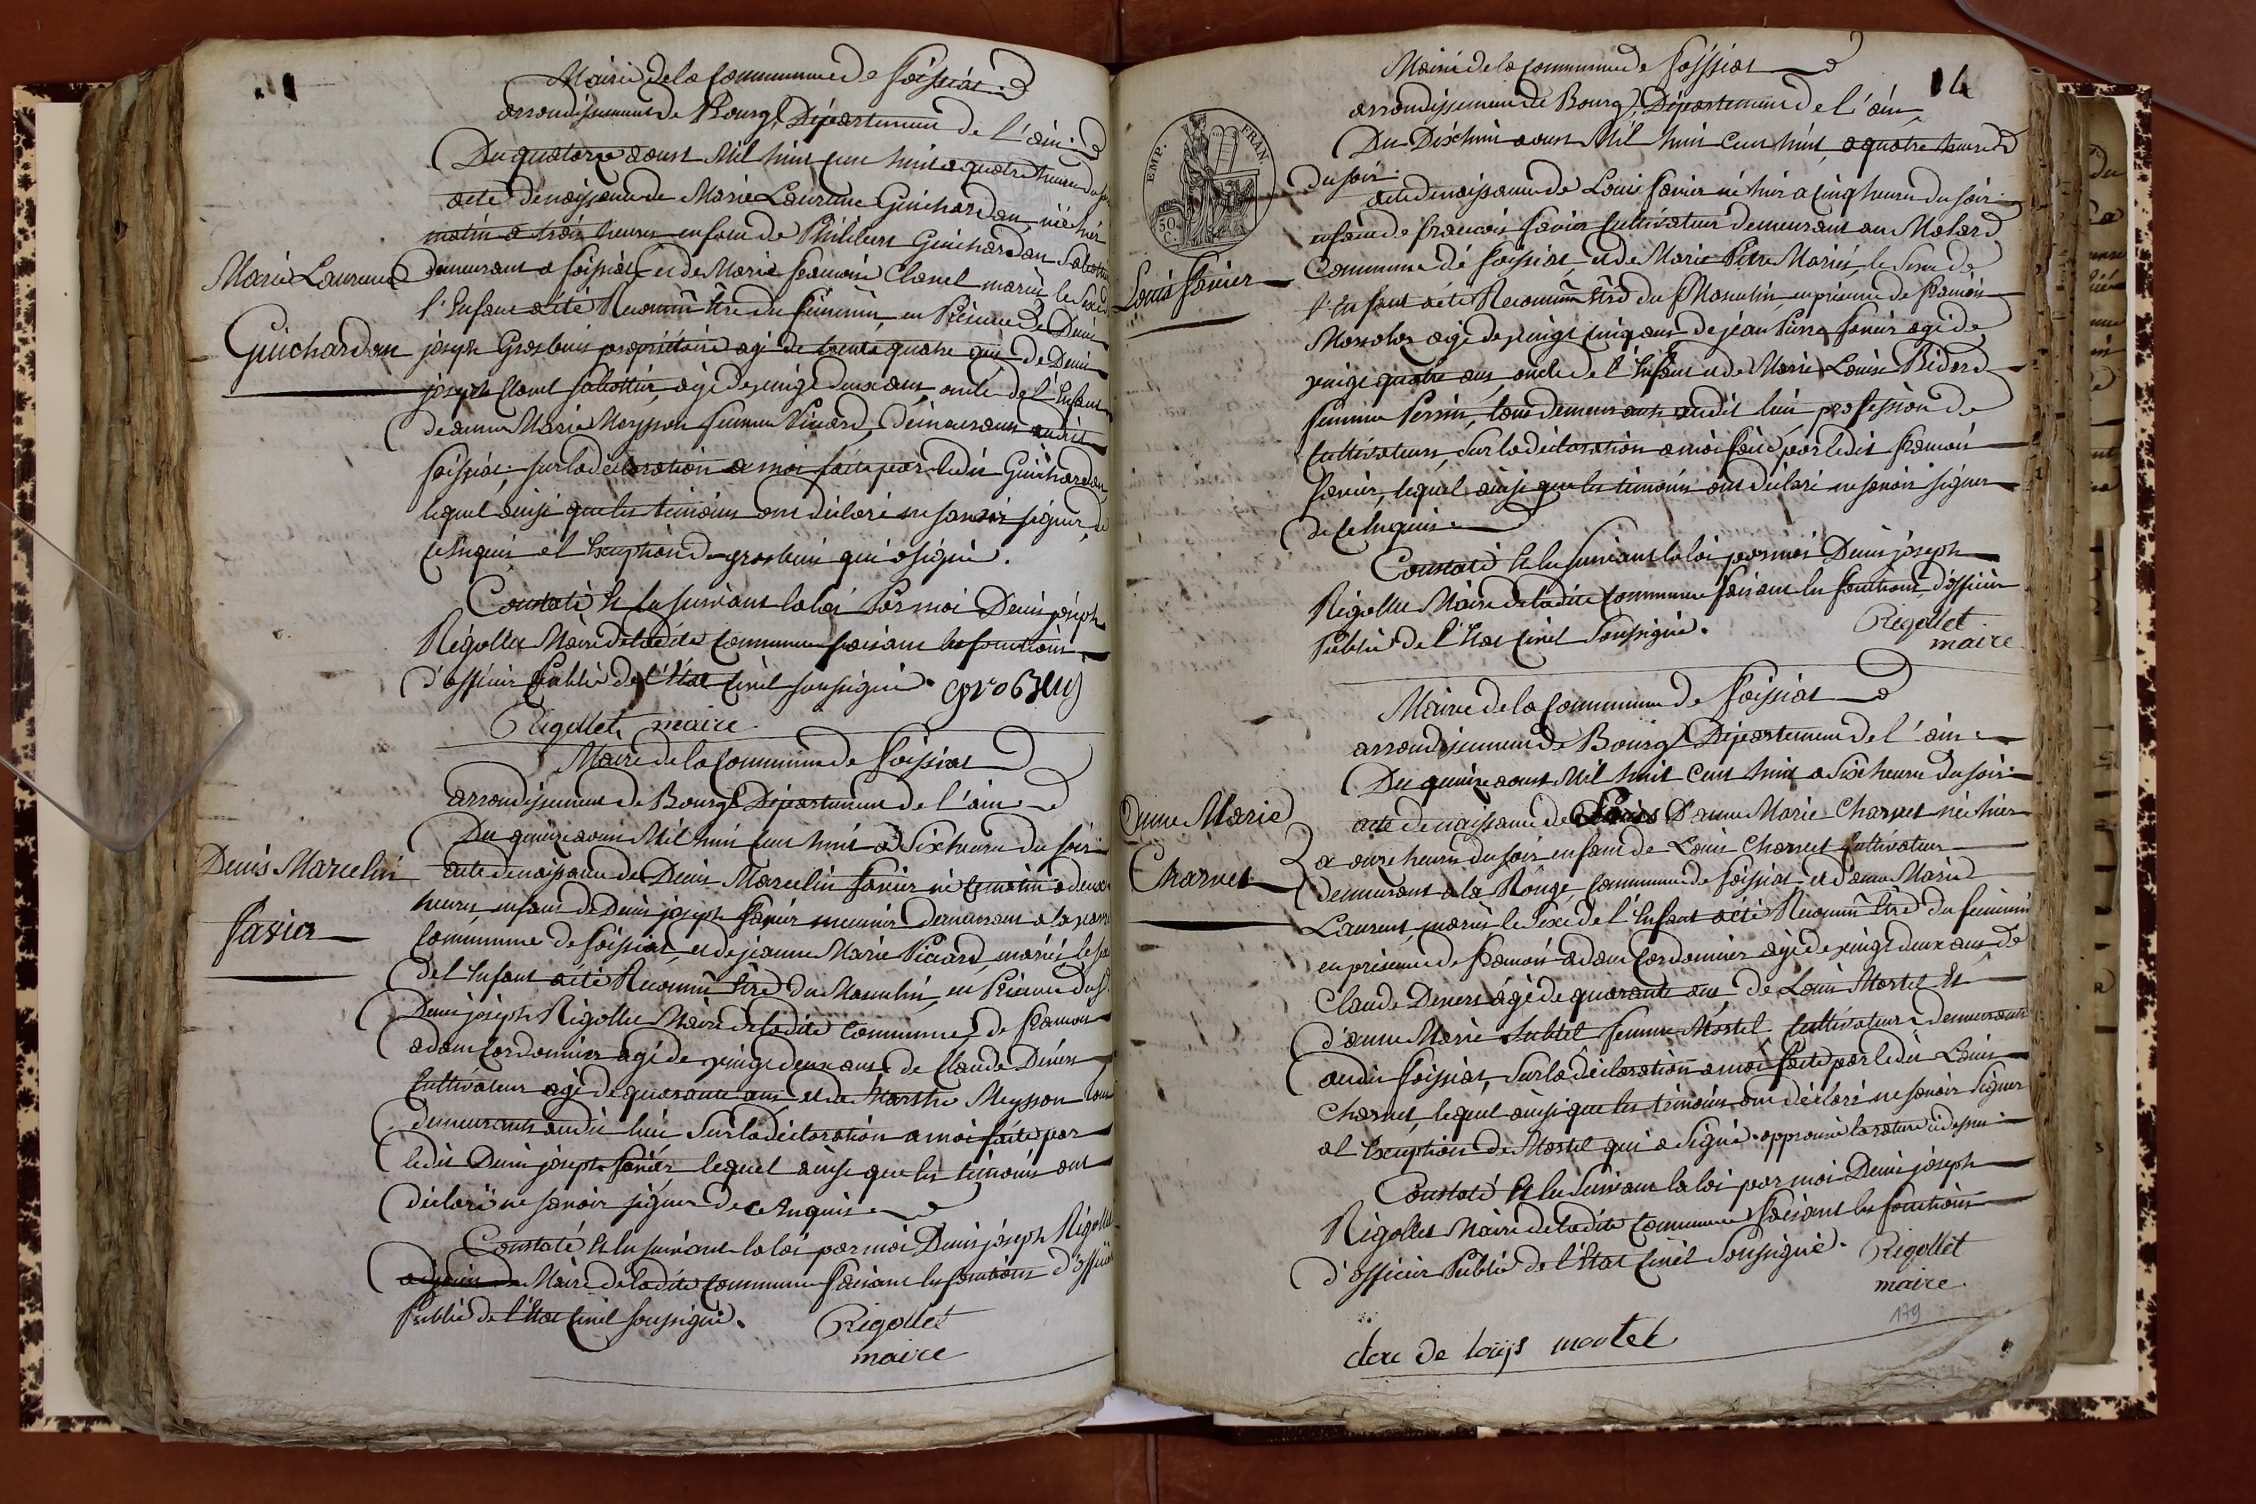 Mairie de la Commune de foissiat
arrondissement de Bourg, Département de l'ain
Du quatorze aoust Mil huit cent huit a quatre heures du soir
acte de naissance de Marie Laurence Guichardan, née hier
matin a trois heures enfant de Philibert Guichardan Sabottier
Marie Laurence
demeurant a foissiat, et de Marie francoise Clanet mariés le sexe de
l'Enfant a été Reconnu être du féminin, en Présence de Denis
Guichardan
joseph Grosbuis propriétaire agé de trente quatre ans de Denis
joseph Clanet sabottier, agé de vingt deux ans, oncle de l'Enfant
de anne Marie Meysson femme Picard, demeurants audit
foissiat, sur la déclaration a moi faite par ledit Guichardan
lequel ainsi que les témoins ont déclaré ne savoir signer, de
ce Enquis et Exception de grosbuis qui a signé.
Constaté Et lu suivant la loi Par moi Denis joseph
Rigollet Maire de ladite Commune faisant les fonctions
d'officier Public de l'Etat Civil soussigné. grosbuis
Rigollet maire
Mairie de la Commune de foissiat
arrondissement de Bourg Département de l'ain
Du quinze aoust Mil huit Cent huit a Six heures du soir
Denis Marcelin
acte de naissance de Denis Marcelin favier né ce matin a deux
heures enfant de Denis joseph favier meunier demeurant a la
favier
Commune de foissiat, et de jeanne Marie Picard, mariés, le sexe
de l'Enfant a été Reconnu être du Masculin, en Présence du Sr
Denis joseph Rigollet Maire de ladite Commune, de francois
adam Cordonnier agé de vingt deux ans, de Claude Deners
Cultivateur agé de quarante ans et de Marthe Meysson tous
demeurants audit lieu Sur la déclaration a moi faite par
ledit Denis joseph favier lequel ainsi que les témoins ont
déclaré ne savoir signer de ce Enquis
Constaté Et lu suivant la loi par moi Denis joseph Rigollet
Maire de ladite Commune faisant les fonctions d'officier
Public de l'Etat Civil soussigné.
Rigollet
maire
14
EMP. FRAN.
50
C.
Mairie de la Commune de foissiat
arrondissement de Bourg, Département de l'ain
Du Dix huit aoust Mil huit Cent huit, a quatre heures
du soir
acte de naissance de Louis favier né hier a cinq heures du soir
enfant de francois favier Cultivateur demeurant au Molard
Louis favier
Commune de foissiat, et de Marie Pitre Mariés, le sexe de
l'Enfant a été Reconnu être du Masculin, en présence de francois
agé de vingt cinq ans de jean Pierre favier agé de
vingt quatre ans, oncle de l'Enfant et de Marie Louise Bidard
femme Perrin, tous demeurants audit lieu, profession de
Cultivateurs, Sur la déclaration a moi faite par ledit francois
favier, lequel ainsi que les témoins ont déclaré ne savoir signer
de ce Enquis
Constaté Et lu suivant la loi par moi Denis joseph
Rigollet Maire de ladite Commune faisant les fonctions d'officier
Public de l'Etat Civil Soussigné.
Rigollet
maire
Mairie de la Commune de foissiat
arrondissement de Bourg Département de l'ain
Du quinze aoust Mil huit Cent huit a Six heures du soir
anne Marie
acte de naissance de D'anne Marie Charnet née hier
Charnet
a onze heures du soir enfant de Louis Charnet Cultivateur
demeurant a la Rouge Commune de foissiat et d'anne Marie
Laurent, mariés le sexe de l'Enfant a été Reconnu être du feminin
en présence de francois adam Cordonnier agé de vingt deux ans de
Claude Deners agé de quarante ans, de Louis Mortel Et
d'anne Marie femme Mortel Cultivateurs demeurants
audit foissiat, Sur la déclaration a moi faite par ledit Louis
Charnet, lequel ainsi que les témoins ont déclaré ne savoir signer
al Exception de Mortel qui a signé. approuvé la rature ci dessus
Constaté Et lu suivant la loi par moi Denis joseph
Rigollet Maire de ladite Commune faisant les fonctions
d'officier Public de l'Etat Civil Soussigné.
Rigollet
maire
179
de loüis mortel